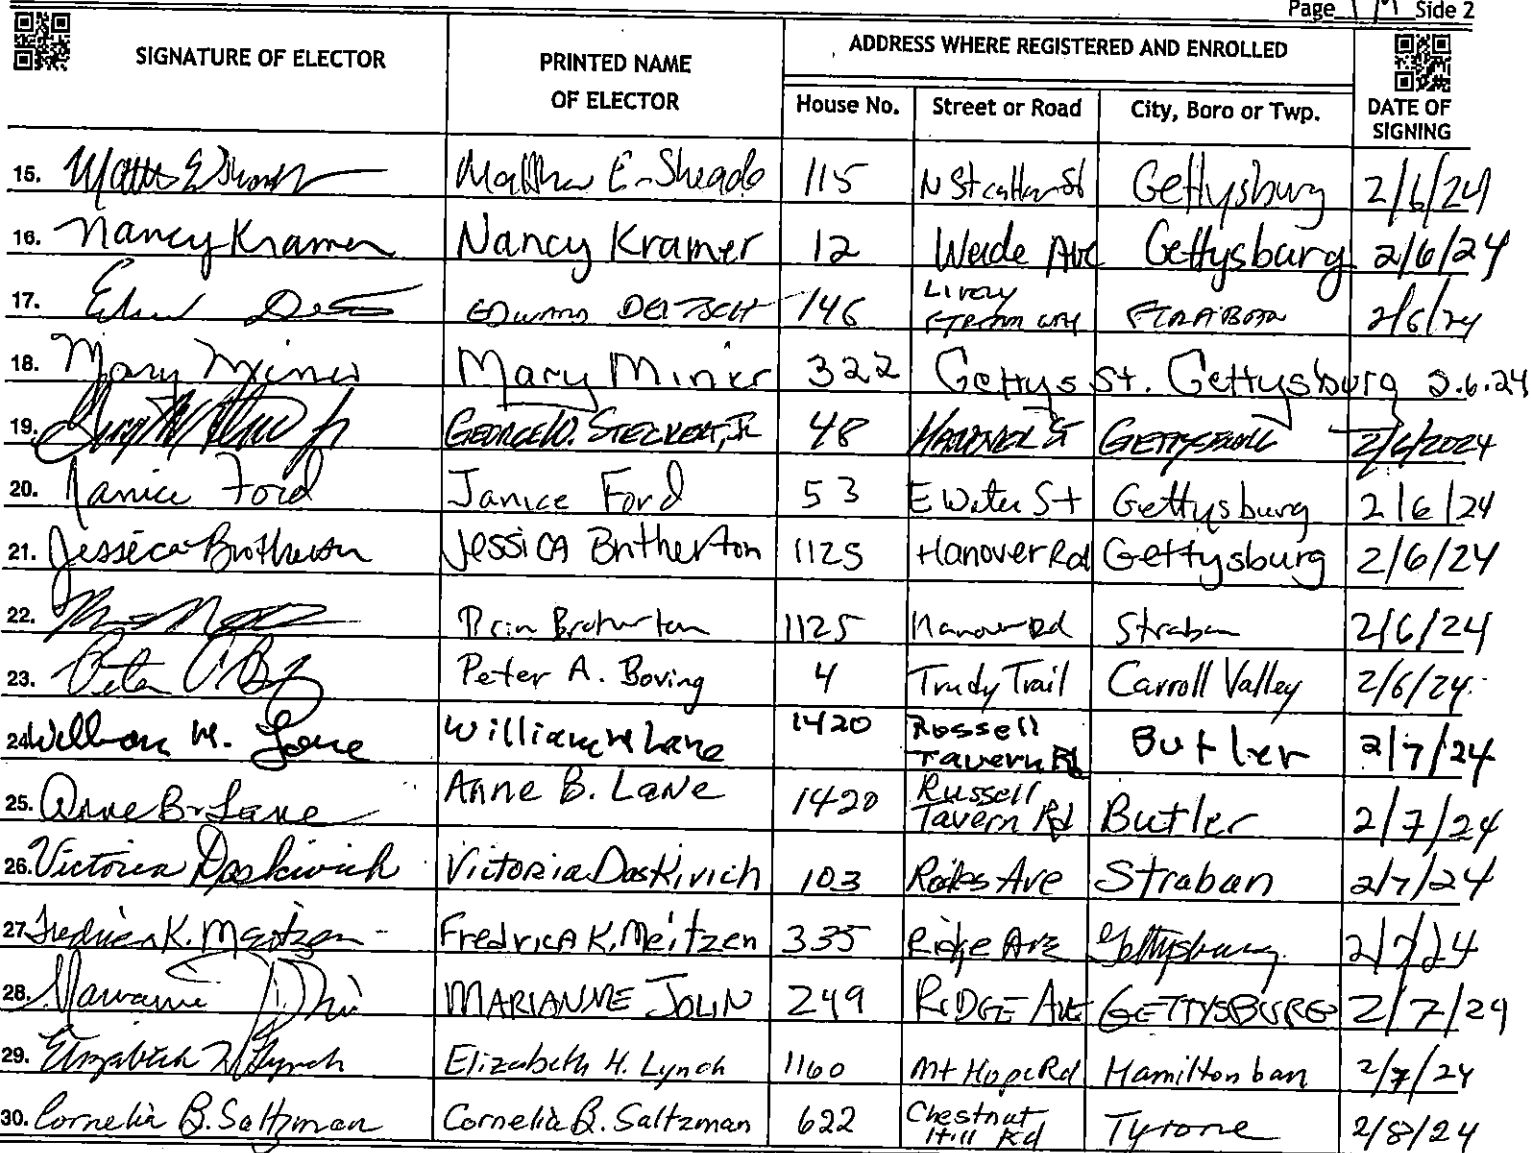 Page Side 2
SIGNATURE OF ELECTOR
PRINTED NAME OF ELECTOR
ADDRESS WHERE REGISTERED AND ENROLLED
House No. Street or Road City, Boro or Twp.
DATE OF SIGNING
15. Matthew E. 115 N St Gettysburg 2/6/24
16. Nancy Kramer Nancy Kramer 12 Ave Gettysburg 2/6/24
17. EDWARD 146 2/6/24
18. Mary Miner Mary Miner 322 Gettys St. Gettysburg 2.6.24
19. GEORGE W. STECKERT, JR 48 GETTYSBURG 2/6/2024
20. Janice Ford Janice Ford 53 E Water St Gettysburg 2/6/24
21. Jessica Brotherton JESSICA Brtherton 1125 Hanover Rd Gettysburg 2/6/24
22. Brotherton 1125 Hanover Rd Straban 2/6/24
23. Peter A. Boving 4 Trudy Trail Carroll Valley 2/6/24
24. William M. Lane William M Lane 1420 Russell Tavern Rd Butler 2/7/24
25. Anne B. Lane Anne B. Lane 1420 Russell Tavern Rd Butler 2/7/24
26. Victoria Daskivich Victoria Daskivich 103 Ave Straban 2/7/24
27. Fredrica K. Meitzen Fredrica K. Meitzen 335 Ridge Ave Gettysburg 2/7/24
28. Marianne MARIANNE JOLIN 249 RIDGE AVE GETTYSBURG 2/7/24
29. Elizabeth H. Lynch Elizabeth H. Lynch 1160 Mt Hope Rd Hamiltonban 2/7/24
30. Cornelia B. Saltzman Cornelia B. Saltzman 622 Chestnut Hill Rd Tyrone 2/8/24